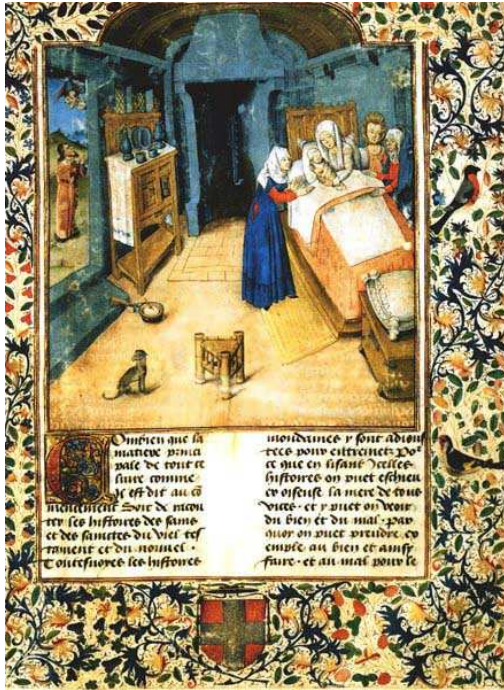 Combien que la
matiere princi
pale de tout ce
liure comme
Il est dit au cō
mencement Soit de racon
ter les histores des sains
et des sainctes du viel tes
tament et du nouuel .
Toutesuoyes les histores
mondaines y sont adious
tees pour entremetz Po
ce que en lisant Icelles
histores on puet eschieu
er oiseuse la mere de tous
vices . et y puet on veoir
du bien et du mal . par
quoy on puet prendre ex
emple au bien et ainsy
faire . et au mal pour le